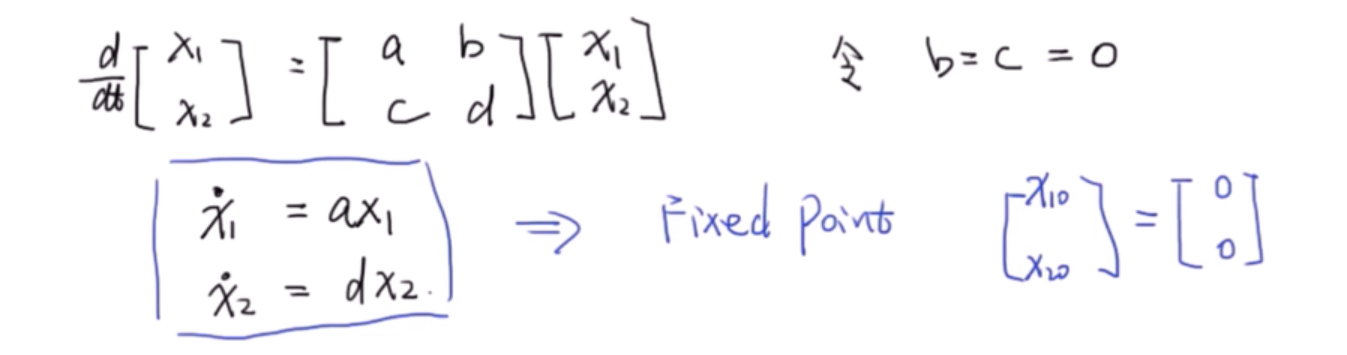 d/dt [x₁ x₂] = [a b c d] [x₁ x₂] 令 b = c = 0
ẋ₁ = ax₁
ẋ₂ = dx₂.
⇒ Fixed Point [x₁₀ x₂₀] = [0 0]